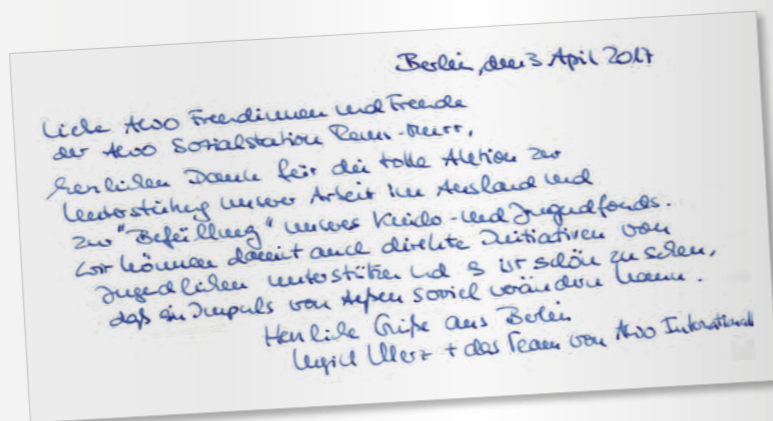 Berlin, den 3 April 2017
Liebe AWO Freundinnen und Freunde
der AWO Sozialstation Rems-Murr,
herzlichen Dank für die tolle Aktion zur
Unterstützung unserer Arbeit im Ausland und
zur "Befüllung" unseres Kinder- und Jugendfonds.
Wir können damit auch direkte Initiativen von
Jugendlichen unterstützen und es ist schön zu sehen,
daß ein Impuls von Außen soviel verändern kann.
Herzliche Grüße aus Berlin
+ das Team von AWO International